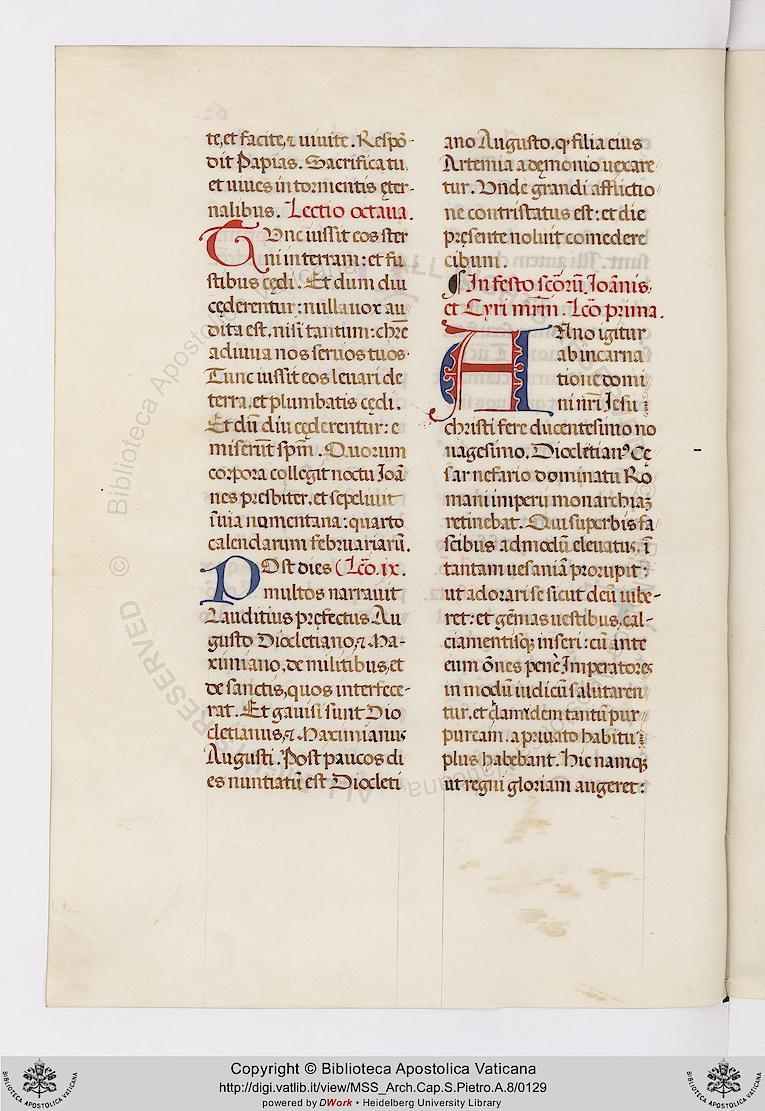 te, et facite, ⁊ uiuite. Respō-
dit Papias. Sacrifica tu,
et uiues in tormentis ęter-
nalibus. Lectio octaua.
TVnc iussit eos ster
ni in terram: et fu
stibus cędi. Et dum diu
cęderentur: nulla uox au
dita est, nisi tantum: chr̄e
adiuua nos seruos tuos.
Tunc iussit eos leuari de
terra, et plumbatis cędi.
Et dū diu cęderentur: e
miserūt spm̄. Quorum
corpora collegit noctu Ioā
nes presbiter, et sepeliuit
ī uia nomentana: quarto
calendarum februariarū.
POst dies (Lcō. ix.
multos narrauit
Lauditius pręfectus Au
gusto Diocletiano, ⁊ Ma-
ximiano, de militibus, et
de sanctis, quos interfece-
rat. Et gauisi sunt Dio
cletianus, ⁊ Maximianus
Augusti. Post paucos di
es nuntiatū est Diocleti
ano Augusto, qꝫ filia eius
Artemia a dęmonio uexare
tur. Vnde grandi afflictio
ne contristatus est: et die
pręsente noluit comedere
cibum.
¶ In festo scōrū. Ioānis,
et Cyri mr̄m. Lcō prima.
ANno igitur
ab incarna
tione domi
ni nr̄i Iesu
christi fere ducentesimo no
nagesimo, Diocletianꝰ Cę
sar nefario dominatu Ro
mani imperii monarchiaꝫ
retinebat. Qui superbis fa
scibus admodū eleuatus, ī
tantam uesaniā prorupit:
ut adorari se sicut deū iube-
ret: et gēmas uestibus, cal-
ciamentisqꝫ inseri: cū ante
eum ōnes penè Imperatores
in modū iudicū salutaren
tur, et clamidem tantū pur
puream, a priuato habitu
plus habebant. Hic namqꝫ
ut regni gloriam augeret:
© Biblioteca Apostolica Vaticana
ALL RIGHTS RESERVED
Copyright © Biblioteca Apostolica Vaticana
http://digi.vatlib.it/view/MSS_Arch.Cap.S.Pietro.A.8/0129
powered by DWork • Heidelberg University Library
BIBLIOTECA APOSTOLICA VATICANA
BIBLIOTECA APOSTOLICA VATICANA